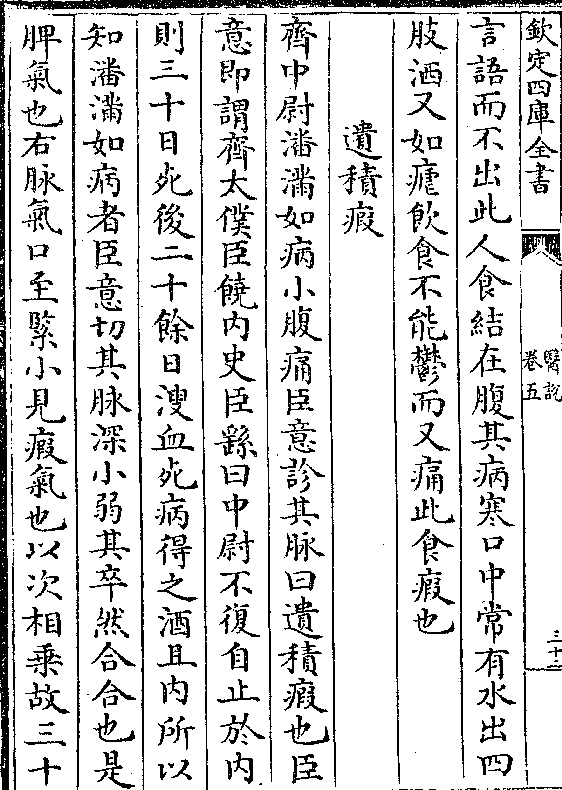 欽定四庫全書
醫説
卷五
三十三
言語而不出此人食結在腹其病寒口中常有水出四
肢洒又如瘧飲食不能鬱而又痛此食瘕也
遺積瘕
齊中尉潘滿如病小腹痛臣意診其脉曰遺積瘕也臣
意即謂齊太僕臣饒内史臣繇曰中尉不復自止於内
則三十日死後二十餘日溲血死病得之酒且内所以
知潘滿如病者臣意切其脉深小弱其卒然合合也是
脾氣也右脉氣口至緊小見瘕氣也以次相乘故三十